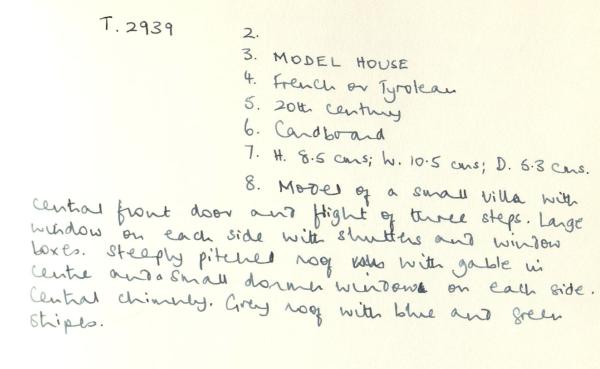 T. 2939
2.
3. MODEL HOUSE
4. French or Tyrolean
5. 20th century
6. Cardboard
7. H. 8.5 cms; W. 10.5 cms; D. 6.3 cms.
8. Model of a small villa with
central front door and flight of three steps. Large
window on each side with shutters and window
boxes. Steeply pitched roof with gable in
centre and a small dormer window on each side.
Central chimney. Grey roof with blue and green
stripes.